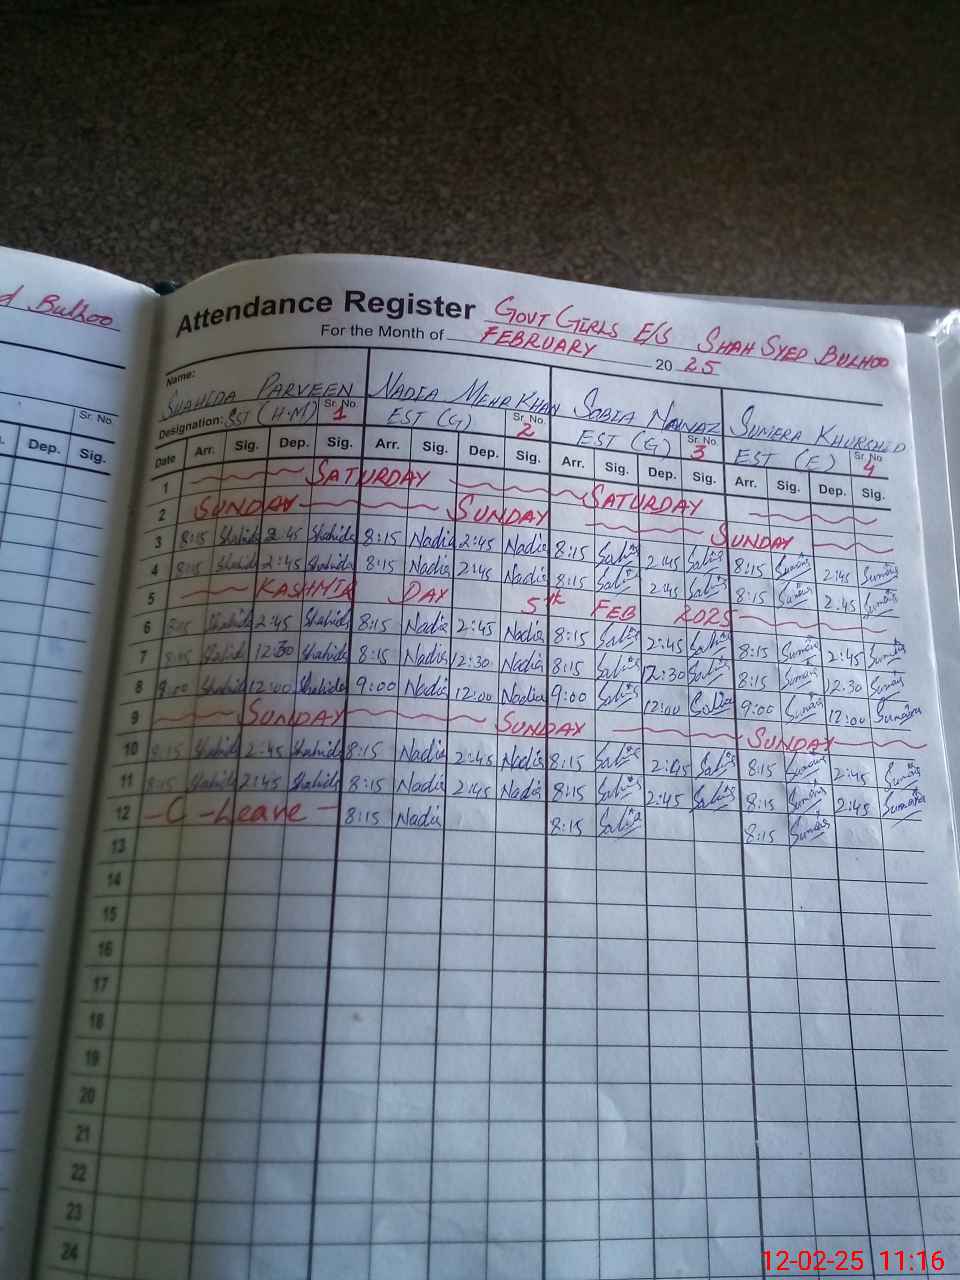 d Bulhoo
Attendance Register GOVT GIRLS E/S SHAH SYED BULHOO
For the Month of FEBRUARY 2025
Name: SHAHIDA PARVEEN NADIA MEHR KHAN SOBIA NOWNAZ SUMERA KHURSHED
Designation: SST (H.M) Sr. No. 1 EST (G) Sr. No. 2 EST (G) Sr. No. 3 EST (E) Sr. No. 4
Sr. No.
Dep. Sig.
Date Arr. Sig. Dep. Sig. Arr. Sig. Dep. Sig. Arr. Sig. Dep. Sig. Arr. Sig. Dep. Sig.
1 SATURDAY SATURDAY
2 SUNDAY SUNDAY SUNDAY
3 8:15 Shahida 2:45 Shahida 8:15 Nadia 2:45 Nadia 8:15 2:45 8:15 2:45
4 8:15 Shahida 2:45 Shahida 8:15 Nadia 2:45 Nadia 8:15 2:45 8:15 2:45
5 KASHMIR DAY 5th FEB 2025
6 8:15 Shahida 2:45 Shahida 8:15 Nadia 2:45 Nadia 8:15 2:45 8:15 2:45
7 8:15 Shahida 12:30 Shahida 8:15 Nadia 12:30 Nadia 8:15 12:30 8:15 12:30
8 9:00 Shahida 12:00 Shahida 9:00 Nadia 12:00 Nadia 9:00 12:00 9:00 12:00
9 SUNDAY SUNDAY SUNDAY
10 8:15 Shahida 2:45 Shahida 8:15 Nadia 2:45 Nadia 8:15 2:45 8:15 2:45
11 8:15 Shahida 2:45 Shahida 8:15 Nadia 2:45 Nadia 8:15 2:45 8:15 2:45
12 - C - Leave - 8:15 Nadia 8:15 8:15
13
14
15
16
17
18
19
20
21
22
23
24
12-02-25 11:16